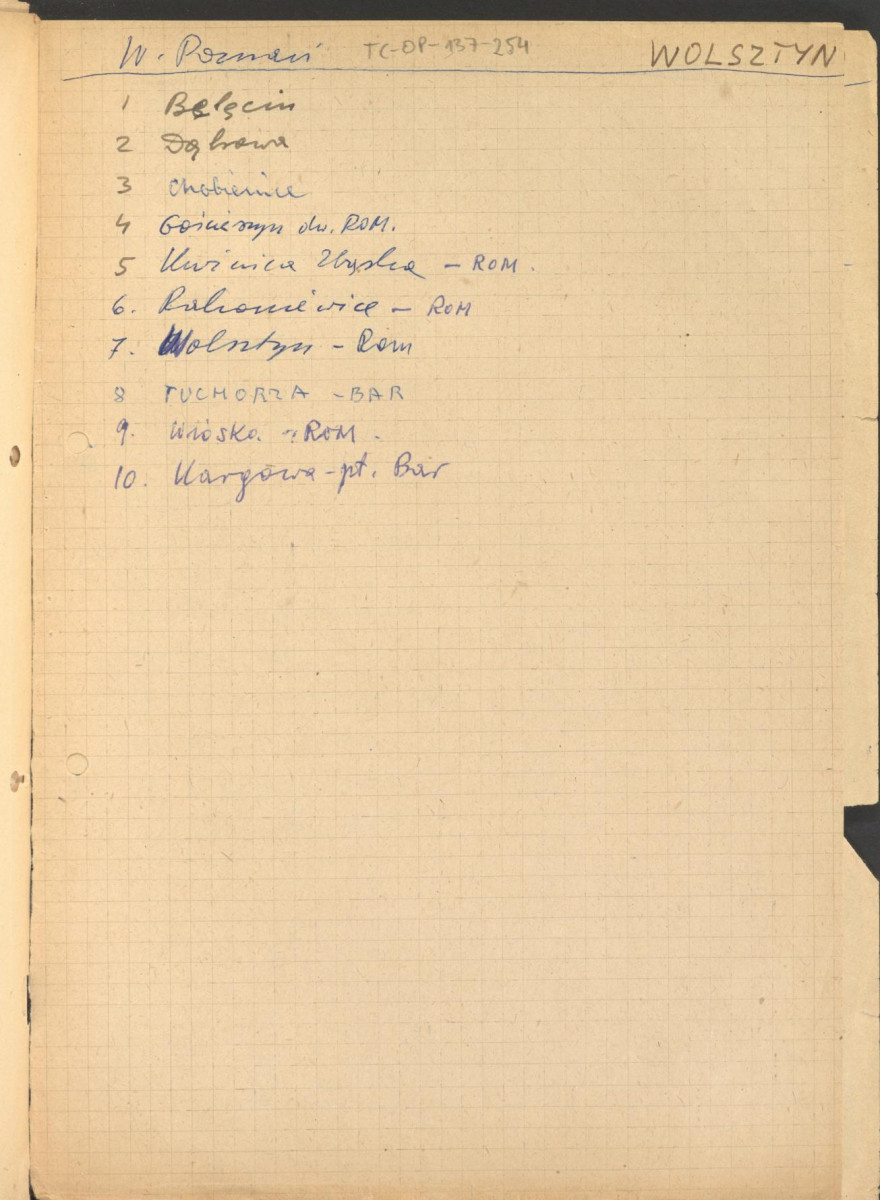 W. Poznań TC-OP-137-254 WOLSZTYN
1 Bęlęcin
2 Dąbrowa
3 Chobienice
4 Gościeszyn dw. ROM.
5 Kuźnica Zbąska - ROM.
6. Rakoniewice - ROM
7. Wolsztyn - Rom
8 TUCHORZA - BAR
9. Wioska - ROM.
10. Kargowa - pt. Bar